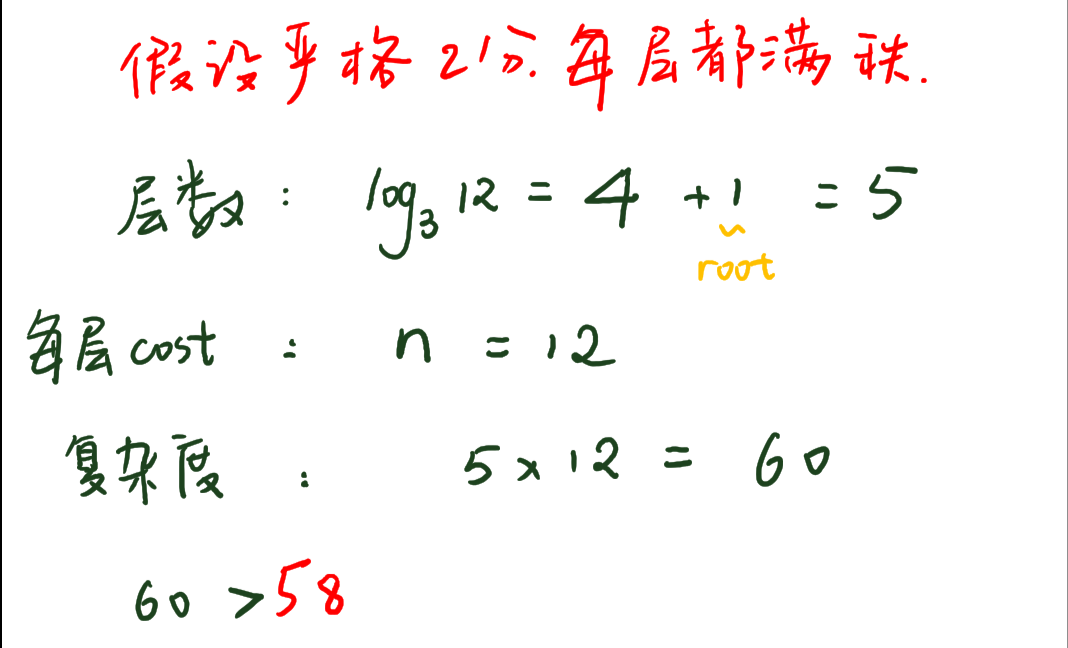 假设严格21分.每层都满秩.
层数: log₃12 = 4 + 1 = 5
root
每层cost : n = 12
复杂度 : 5 x 12 = 60
60 > 58